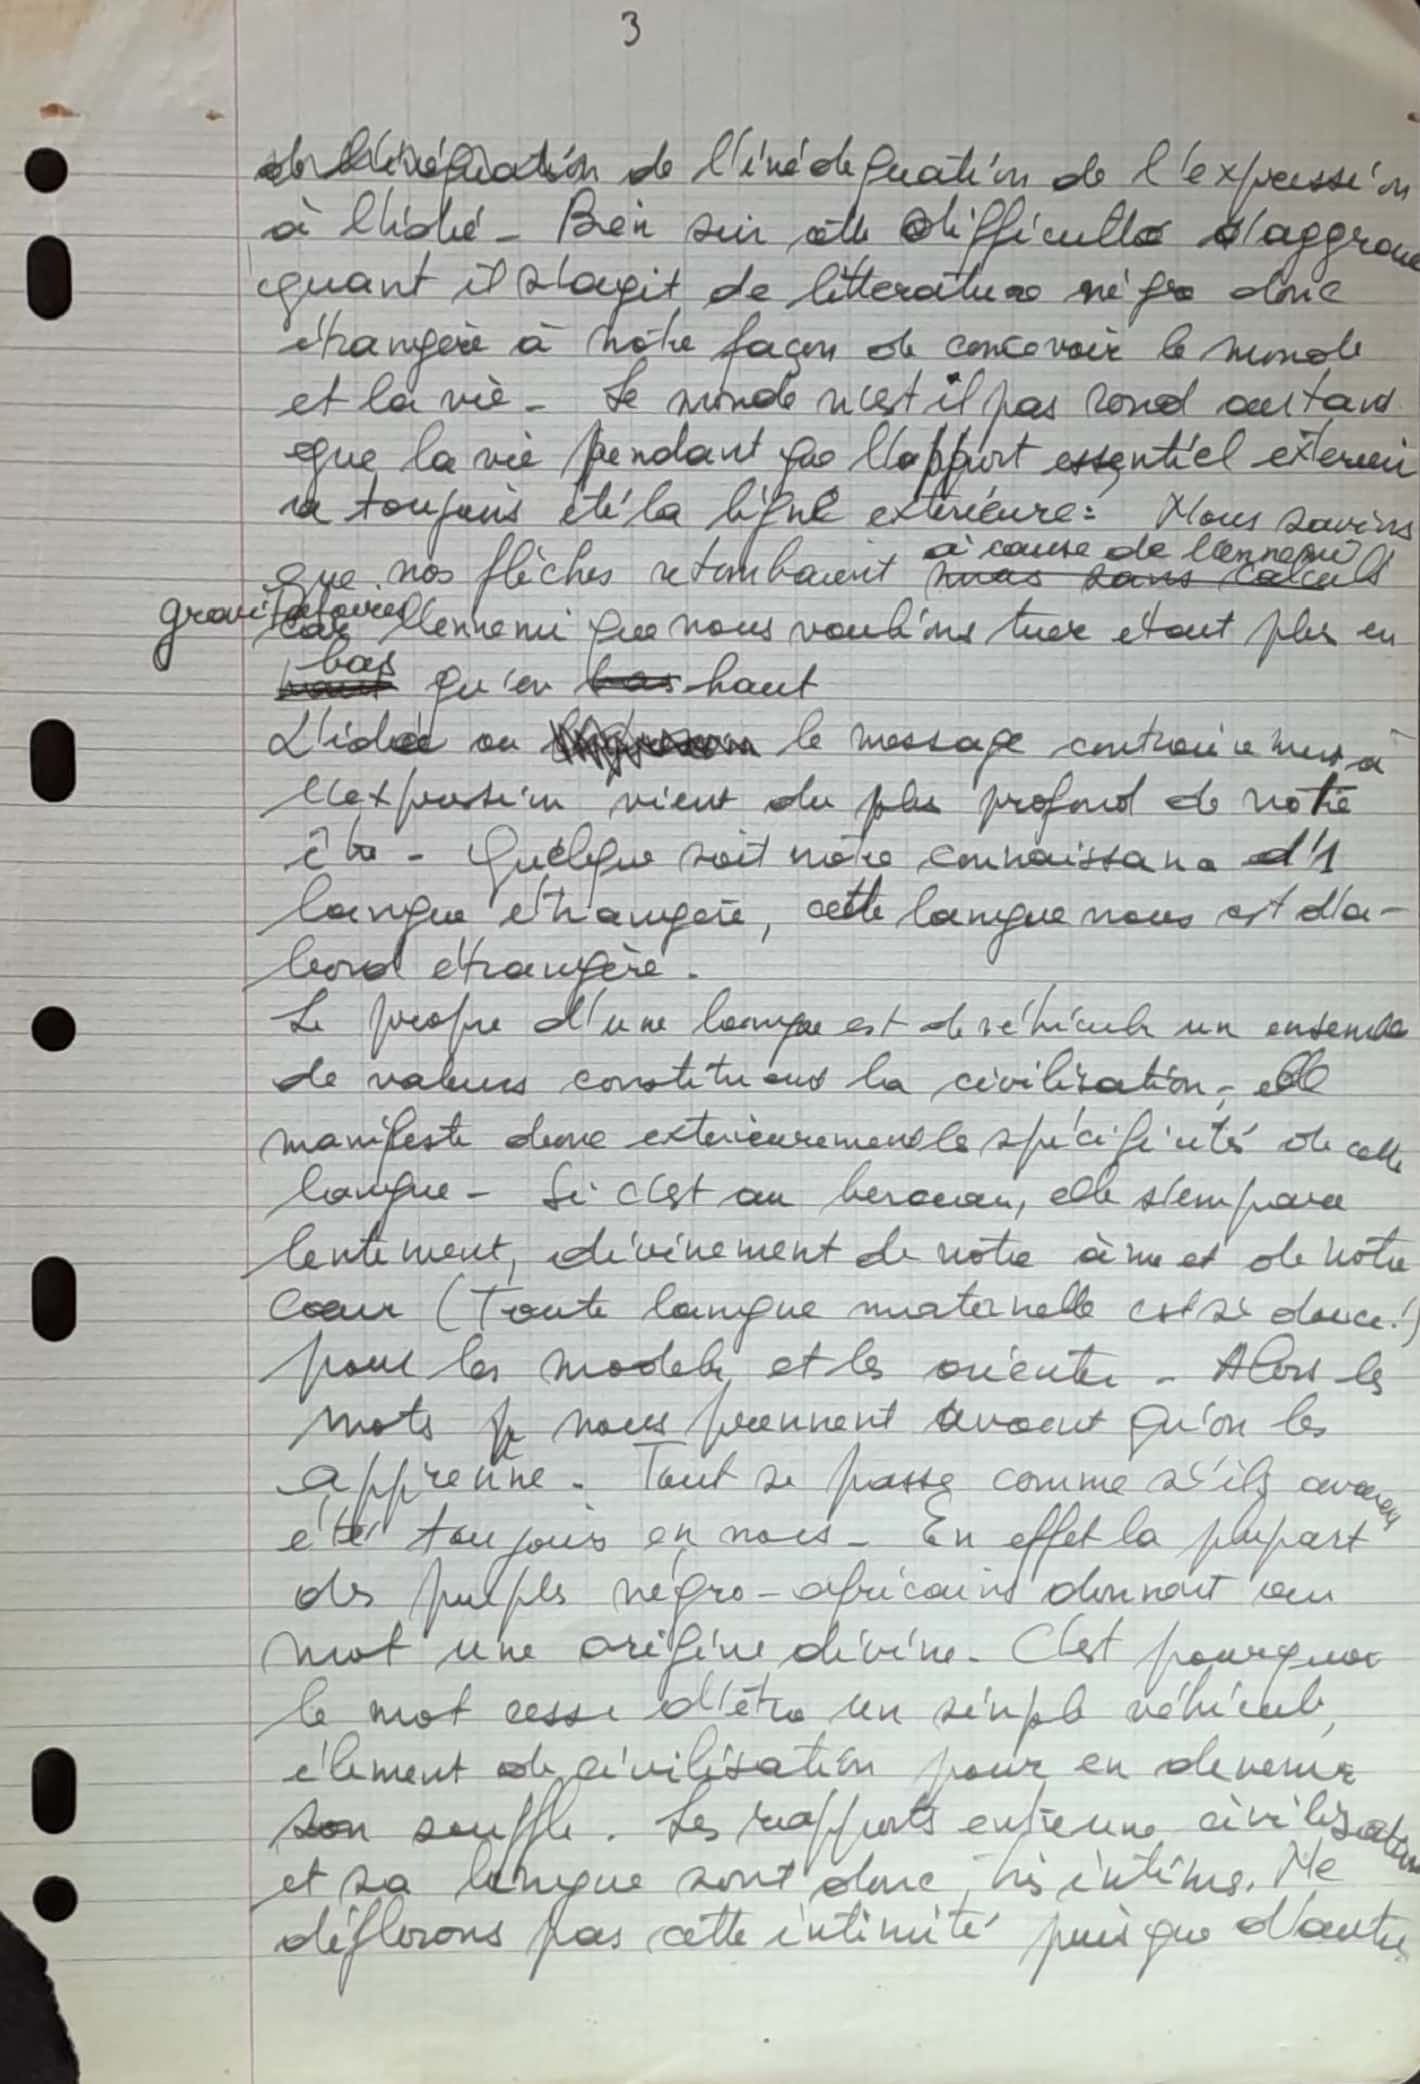 3
de l'inéquation de l'inédequation de l'expression
à l'idée - Bien sûr cette difficulté s'aggrave
quant il s'agit de litterature négro donc
étrangère à notre façon de concevoir le monde
et la vie - Le monde n'est il pas rond autant
que la vie pendant que l'apport essentiel exterieur
a toujours été la ligne exterieure: Nous savions
à cause de l'ennemi
que nos flèches retombaient mais sans calculs
gravitatoires
car l'ennemi que nous voulions tuer était plus en
bas
haut qu'en bas haut
L'idée ou le message contrairement à
l'expression vient du plus profond de notre
être - Quelque soit notre connaissance d'1
langue étrangère, cette langue nous est d'a-
bord étrangère.
Le propre d'une langue est de véhiculer un ensemble
de valeurs constituant la civilisation, elle
manifeste donc exterieurement le spécificité de cette
langue - Si c'est au berceau, elle s'empare
lentement, divinement de notre âme et de notre
Cœur (Toute langue maternelle est si douce!)
pour les modeler et les orienter - Alors les
mots nous prennent avant qu'on les
apprenne. Tout se passe comme s'ils avaient
été toujours en nous - En effet la plupart
des peuples négro-africains donnent au
mot une origine divine. C'est pourquoi
le mot cesse d'être un simple véhicule,
élement de civilisation pour en devenir
son souffle. Les rapports entre une civilisation
et sa langue sont donc très intimes. Ne
déflorons pas cette intimité puisque d'autres